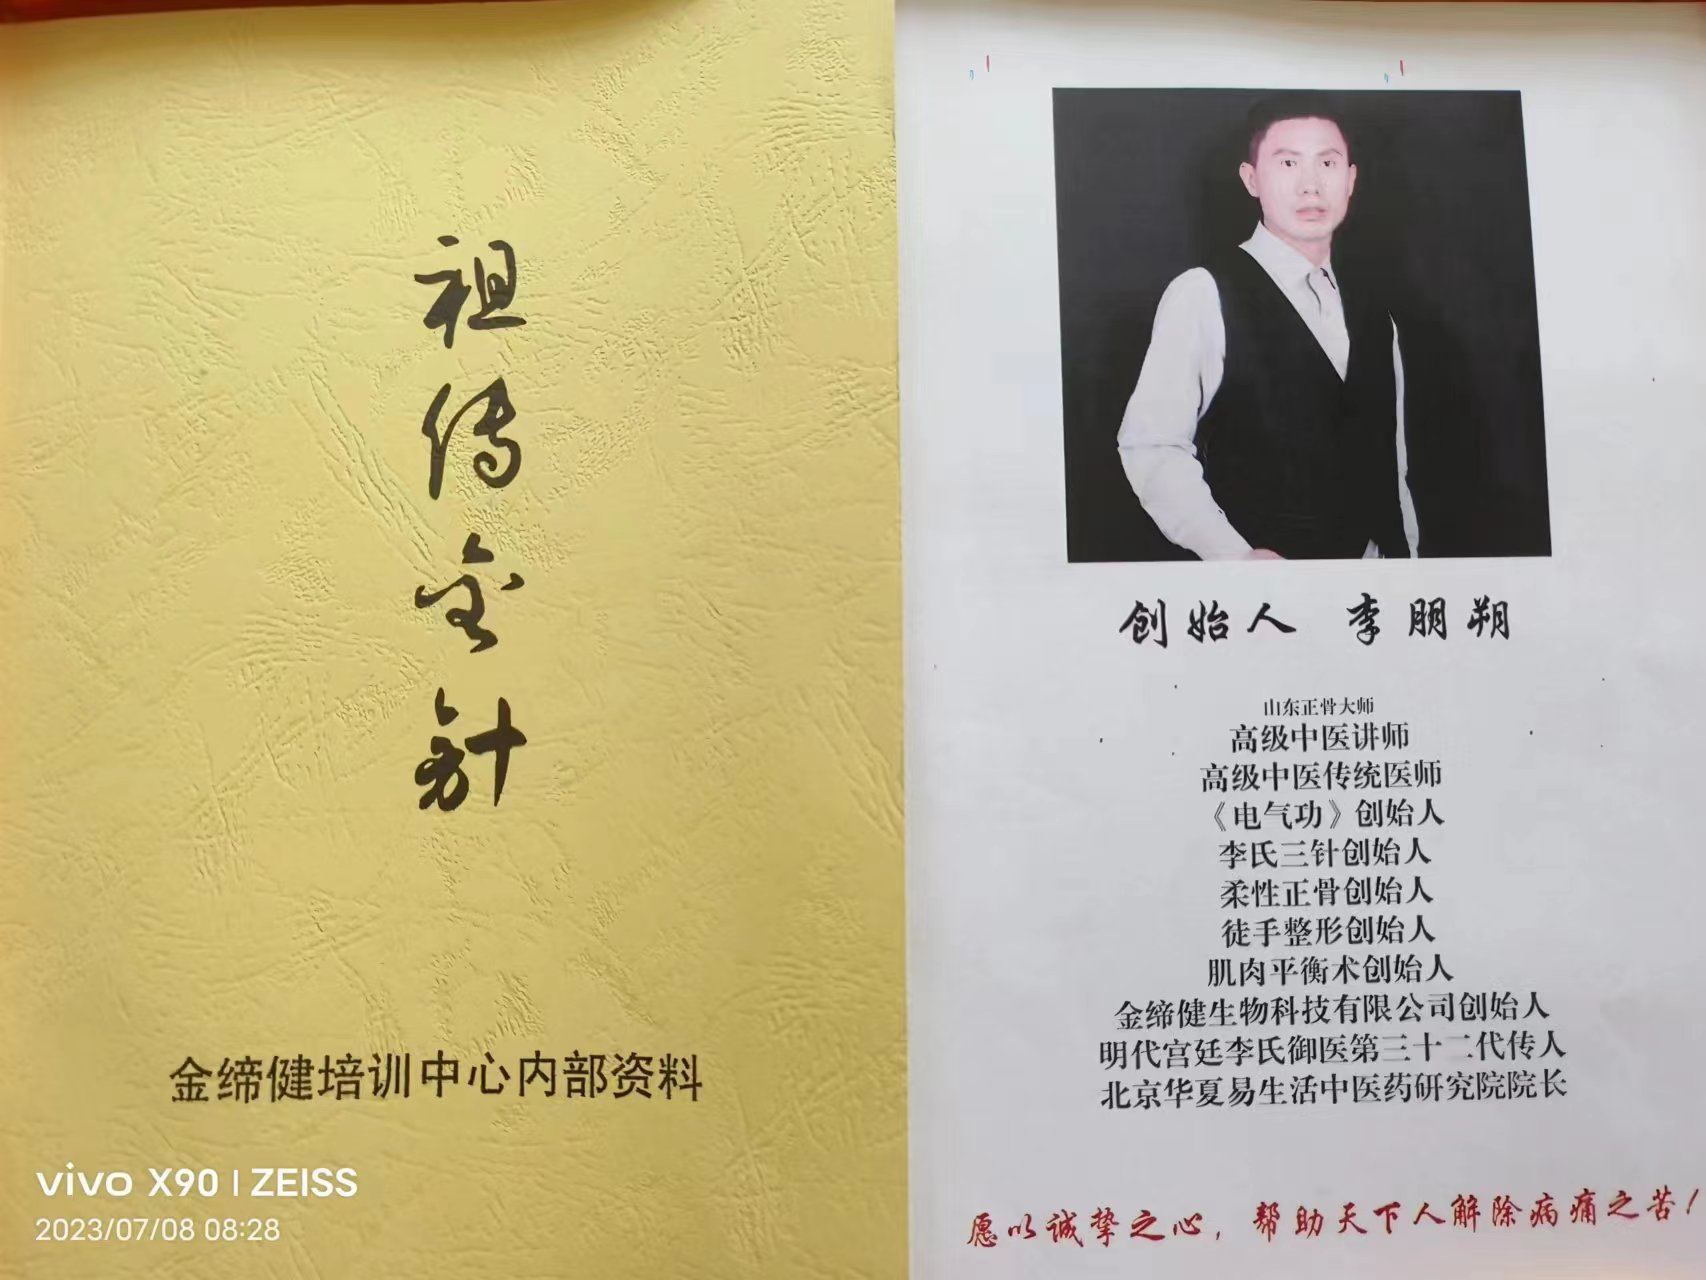 祖传金针
金缔健培训中心内部资料
vivo X90 | ZEISS
2023/07/08 08:28
创始人 李朋朔
山东正骨大师
高级中医讲师
高级中医传统医师
《电气功》创始人
李氏三针创始人
柔性正骨创始人
徒手整形创始人
肌肉平衡术创始人
金缔健生物科技有限公司创始人
明代宫廷李氏御医第三十二代传人
北京华夏易生活中医药研究院院长
愿以诚挚之心，帮助天下人解除病痛之苦！